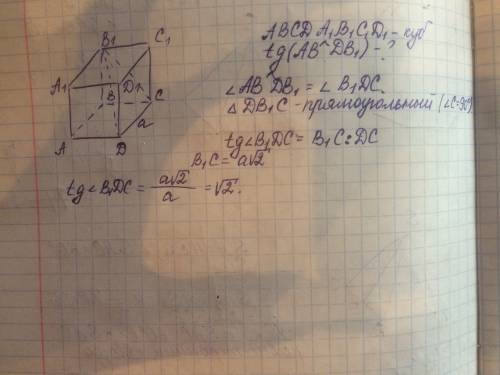 B₁ C₁
A₁ D₁
B C
a
A D
ABCDA₁B₁C₁D₁ - куб
tg(AB^DB₁) - ?
∠AB^DB₁ = ∠B₁DC.
△DB₁C - прямоугольный (∠C=90°)
tg∠B₁DC = B₁C : DC
B₁C = a√2
tg∠B₁DC = a√2 / a = √2.